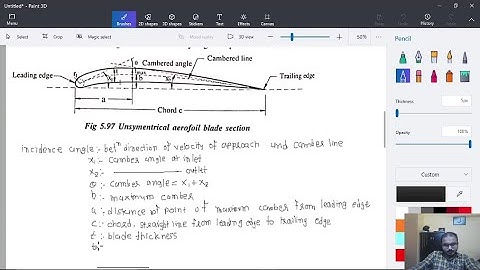 Untitled* - Paint 3D
Menu
Brushes
2D shapes
3D shapes
Stickers
Text
Effects
Canvas
Paste
Undo
Redo
Select
Crop
Magic select
3D view
50%
Pencil
Cambered angle
Cambered line
Leading edge
Trailing edge
θ
max
b
a
Chord c
Fig 5.97 Unsymentrical aerofoil blade section
incidence angle:- betn direction of velocity of approach and camber line
x1:- camber angle at inlet
x2:- outlet
θ:- camber angle = x1 + x2
b:- maximum camber
a: distance of point of maximum camber from leading edge
c:- chord. straight line from leading edge to trailing edge
t:- blade thickness
Thickness
5px
Opacity
100%